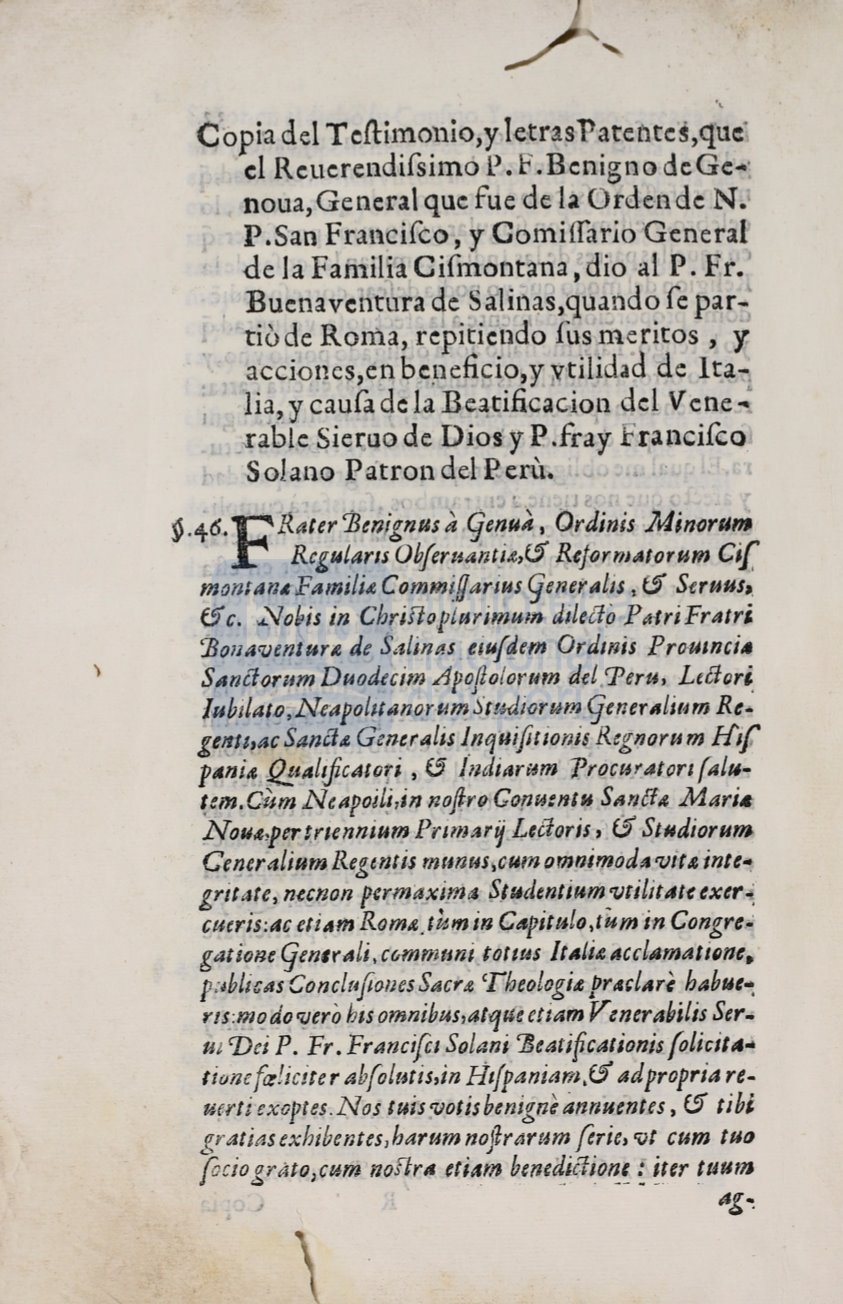 Copia del Teſtimonio, y letras Patentes, que
el Reuerendiſsimo P. F. Benigno de Ge-
noua, General que fue de la Orden de N.
P. San Franciſco, y Comiſſario General
de la Familia Ciſmontana, dio al P. Fr.
Buenaventura de Salinas, quando ſe par-
tiò de Roma, repitiendo ſus meritos, y
acciones, en beneficio, y vtilidad de Ita-
lia, y cauſa de la Beatificacion del Vene-
rable Sieruo de Dios y P. fray Franciſco
Solano Patron del Perù.
§.46. FRater Benignus à Genuà, Ordinis Minorum
Regularis Obſeruantiæ, & Reformatorum Ciſ
montanæ Familiæ Commiſſarius Generalis, & Seruus,
&c. Nobis in Chriſto plurimum dilecto Patri Fratri
Bonaventuræ de Salinas eiuſdem Ordinis Prouinciæ
Sanctorum Duodecim Apoſtolorum del Peru, Lectori
Iubilato, Neapolitanorum Studiorum Generalium Re-
genti, ac Sanctæ Generalis Inquiſitionis Regnorum Hiſ
paniæ Qualificatori, & Indiarum Procuratori ſalu-
tem. Cùm Neapoili, in noſtro Conuentu Sanctæ Mariæ
Nouæ, per triennium Primarij Lectoris, & Studiorum
Generalium Regentis munus, cum omnimoda vitæ inte-
gritate, necnon permaxima Studentium vtilitate exer-
cueris: ac etiam Romæ tùm in Capitulo, tùm in Congre-
gatione Generali, communi totius Italiæ acclamatione,
publicas Concluſiones Sacræ Theologiæ præclarè habue-
ris: modo verò his omnibus, atque etiam Venerabilis Ser-
ui Dei P. Fr. Franciſci Solani Beatificationis ſolicita-
tione fœliciter abſolutis, in Hiſpaniam, & ad propria re-
uerti exoptes. Nos tuis votis benignè annuentes, & tibi
gratias exhibentes, harum noſtrarum ſerie, vt cum tuo
ſocio grato, cum noſtra etiam benedictione: iter tuum
ag-